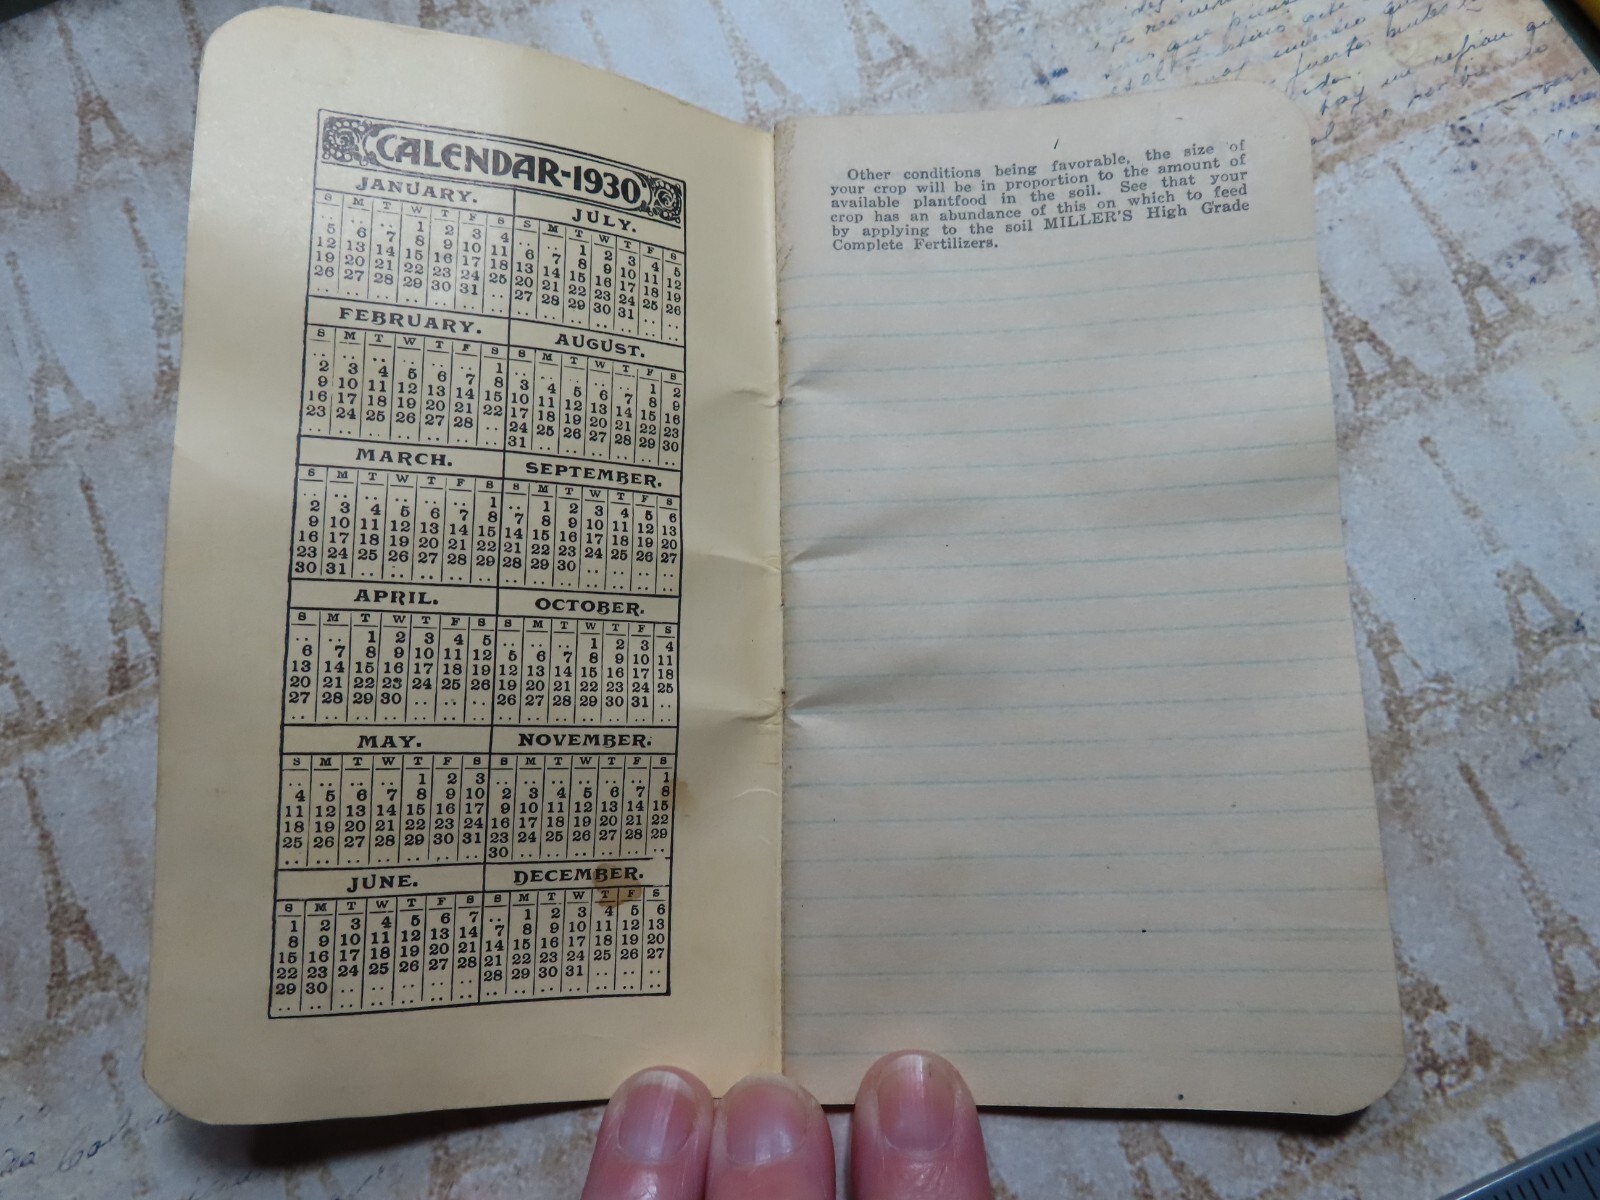 CALENDAR-1930
JANUARY.
S M T W T F S
.. .. .. 1 2 3 4
5 6 7 8 9 10 11
12 13 14 15 16 17 18
19 20 21 22 23 24 25
26 27 28 29 30 31 ..
FEBRUARY.
S M T W T F S
.. .. .. .. .. .. 1
2 3 4 5 6 7 8
9 10 11 12 13 14 15
16 17 18 19 20 21 22
23 24 25 26 27 28 ..
MARCH.
S M T W T F S
.. .. .. .. .. .. 1
2 3 4 5 6 7 8
9 10 11 12 13 14 15
16 17 18 19 20 21 22
23 24 25 26 27 28 29
30 31 .. .. .. .. ..
APRIL.
S M T W T F S
.. .. 1 2 3 4 5
6 7 8 9 10 11 12
13 14 15 16 17 18 19
20 21 22 23 24 25 26
27 28 29 30 .. .. ..
MAY.
S M T W T F S
.. .. .. .. 1 2 3
4 5 6 7 8 9 10
11 12 13 14 15 16 17
18 19 20 21 22 23 24
25 26 27 28 29 30 31
JUNE.
S M T W T F S
1 2 3 4 5 6 7
8 9 10 11 12 13 14
15 16 17 18 19 20 21
22 23 24 25 26 27 28
29 30 .. .. .. .. ..
JULY.
S M T W T F S
.. .. 1 2 3 4 5
6 7 8 9 10 11 12
13 14 15 16 17 18 19
20 21 22 23 24 25 26
27 28 29 30 31 .. ..
AUGUST.
S M T W T F S
.. .. .. .. .. 1 2
3 4 5 6 7 8 9
10 11 12 13 14 15 16
17 18 19 20 21 22 23
24 25 26 27 28 29 30
31
SEPTEMBER.
S M T W T F S
.. 1 2 3 4 5 6
7 8 9 10 11 12 13
14 15 16 17 18 19 20
21 22 23 24 25 26 27
28 29 30 .. .. .. ..
OCTOBER.
S M T W T F S
.. .. .. 1 2 3 4
5 6 7 8 9 10 11
12 13 14 15 16 17 18
19 20 21 22 23 24 25
26 27 28 29 30 31 ..
NOVEMBER.
S M T W T F S
.. .. .. .. .. .. 1
2 3 4 5 6 7 8
9 10 11 12 13 14 15
16 17 18 19 20 21 22
23 24 25 26 27 28 29
30
DECEMBER.
S M T W T F S
.. 1 2 3 4 5 6
7 8 9 10 11 12 13
14 15 16 17 18 19 20
21 22 23 24 25 26 27
28 29 30 31 .. .. ..
Other conditions being favorable, the size of
your crop will be in proportion to the amount of
available plantfood in the soil. See that your
crop has an abundance of this on which to feed
by applying to the soil MILLER'S High Grade
Complete Fertilizers.